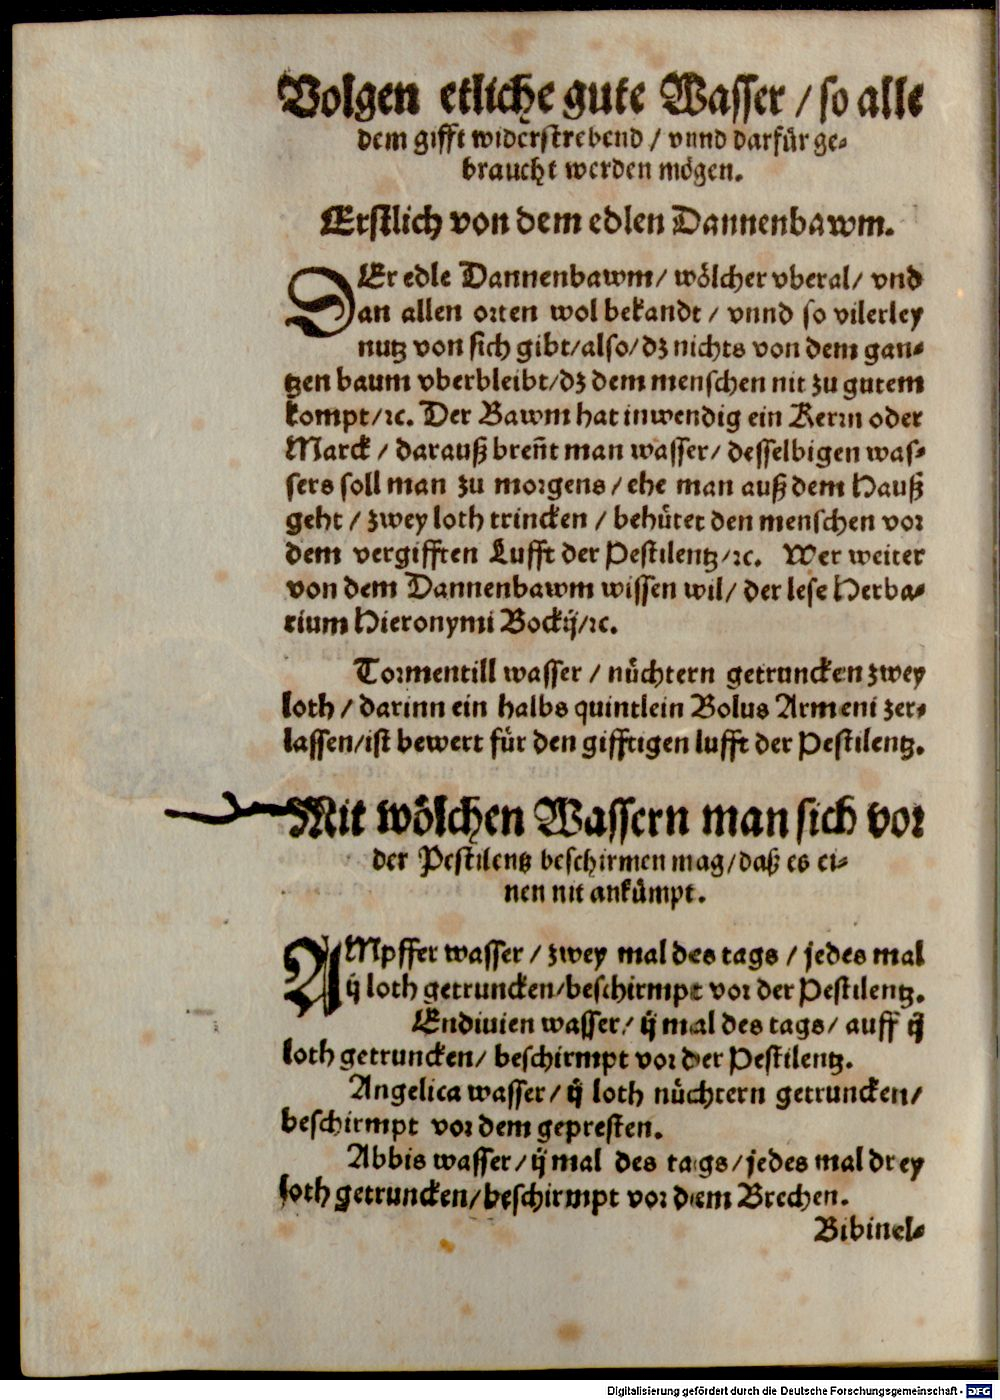 Volgen etliche gute Wasser / so alle
dem gifft widerstrebend / vnnd darfür ge-
braucht werden mögen.
Erstlich von dem edlen Dannenbawm.
DEr edle Dannenbawm / wölcher vberal / vnd
an allen orten wol bekandt / vnnd so vilerley
nutz von sich gibt / also / dz nichts von dem gan-
tzen baum vberbleibt / dz dem menschen nit zu gutem
kompt / ꝛc. Der Bawm hat inwendig ein Kern oder
Marck / darauß breñt man wasser / desselbigen was-
sers soll man zu morgens / ehe man auß dem Hauß
geht / zwey loth trincken / behütet den menschen vor
dem vergifften Lufft der Pestilentz / ꝛc. Wer weiter
von dem Dannenbawm wissen wil / der lese Herba-
rium Hieronymi Bockij / ꝛc.
Tormentill wasser / nüchtern getruncken zwey
loth / darinn ein halbs quintlein Bolus Armeni zer-
lassen / ist bewert für den gifftigen lufft der Pestilentz.
Mit wölchen Wassern man sich vor
der Pestilentz beschirmen mag / daß es ei-
nen nit ankümpt.
AMpffer wasser / zwey mal des tags / jedes mal
ij loth getruncken / beschirmpt vor der Pestilentz.
Endiuien wasser / ij mal des tags / auff ij
loth getruncken / beschirmpt vor der Pestilentz.
Angelica wasser / ij loth nüchtern getruncken /
beschirmpt vor dem gepresten.
Abbis wasser / ij mal des tags / jedes mal drey
loth getruncken / beschirmpt vor dem Brechen.
Bibinel-
Digitalisierung gefördert durch die Deutsche Forschungsgemeinschaft - DFG